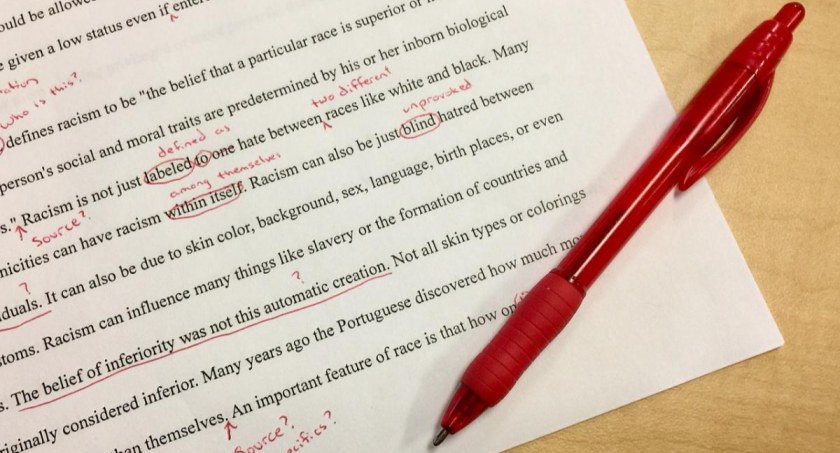 ould be allowe
e given a low status even if ente
nction
who is this?
defines racism to be "the belief that a particular race is superior or
person's social and moral traits are predetermined by his or her inborn biological
defined as
two different
s." Racism is not just labeled to one hate between races like white and black. Many
Source?
among themselves
unprovoked
nicities can have racism within itself. Racism can also be just blind hatred between
?
duals. It can also be due to skin color, background, sex, language, birth places, or even
toms. Racism can influence many things like slavery or the formation of countries and
?
s. The belief of inferiority was not this automatic creation. Not all skin types or colorings
riginally considered inferior. Many years ago the Portuguese discovered how much mo
han themselves. An important feature of race is that how on
Source?
ecifics?